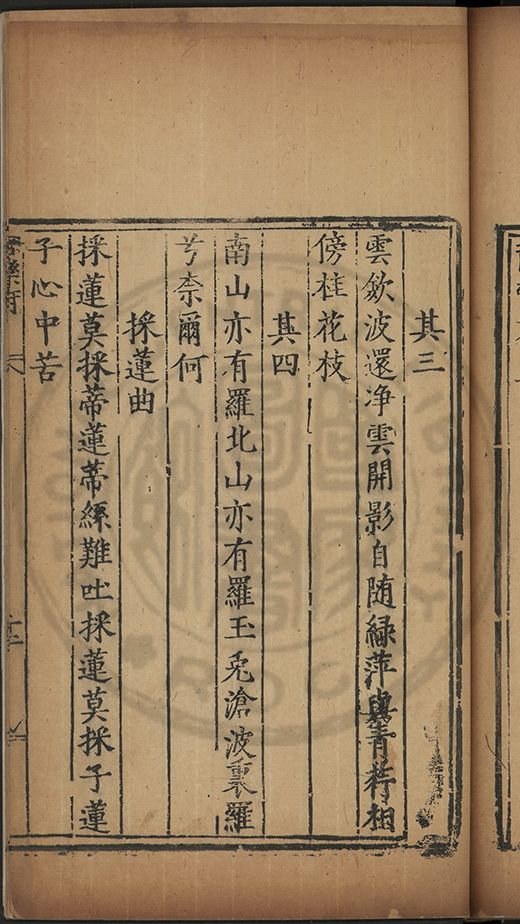 其三
雲歛波還净雲開影自随緑萍與青荇相
傍桂花枝
其四
南山亦有羅北山亦有羅玉兎滄波裏羅
兮柰爾何
採蓮曲
採蓮莫採蒂蓮蒂絲難吐採蓮莫採子蓮
子心中苦